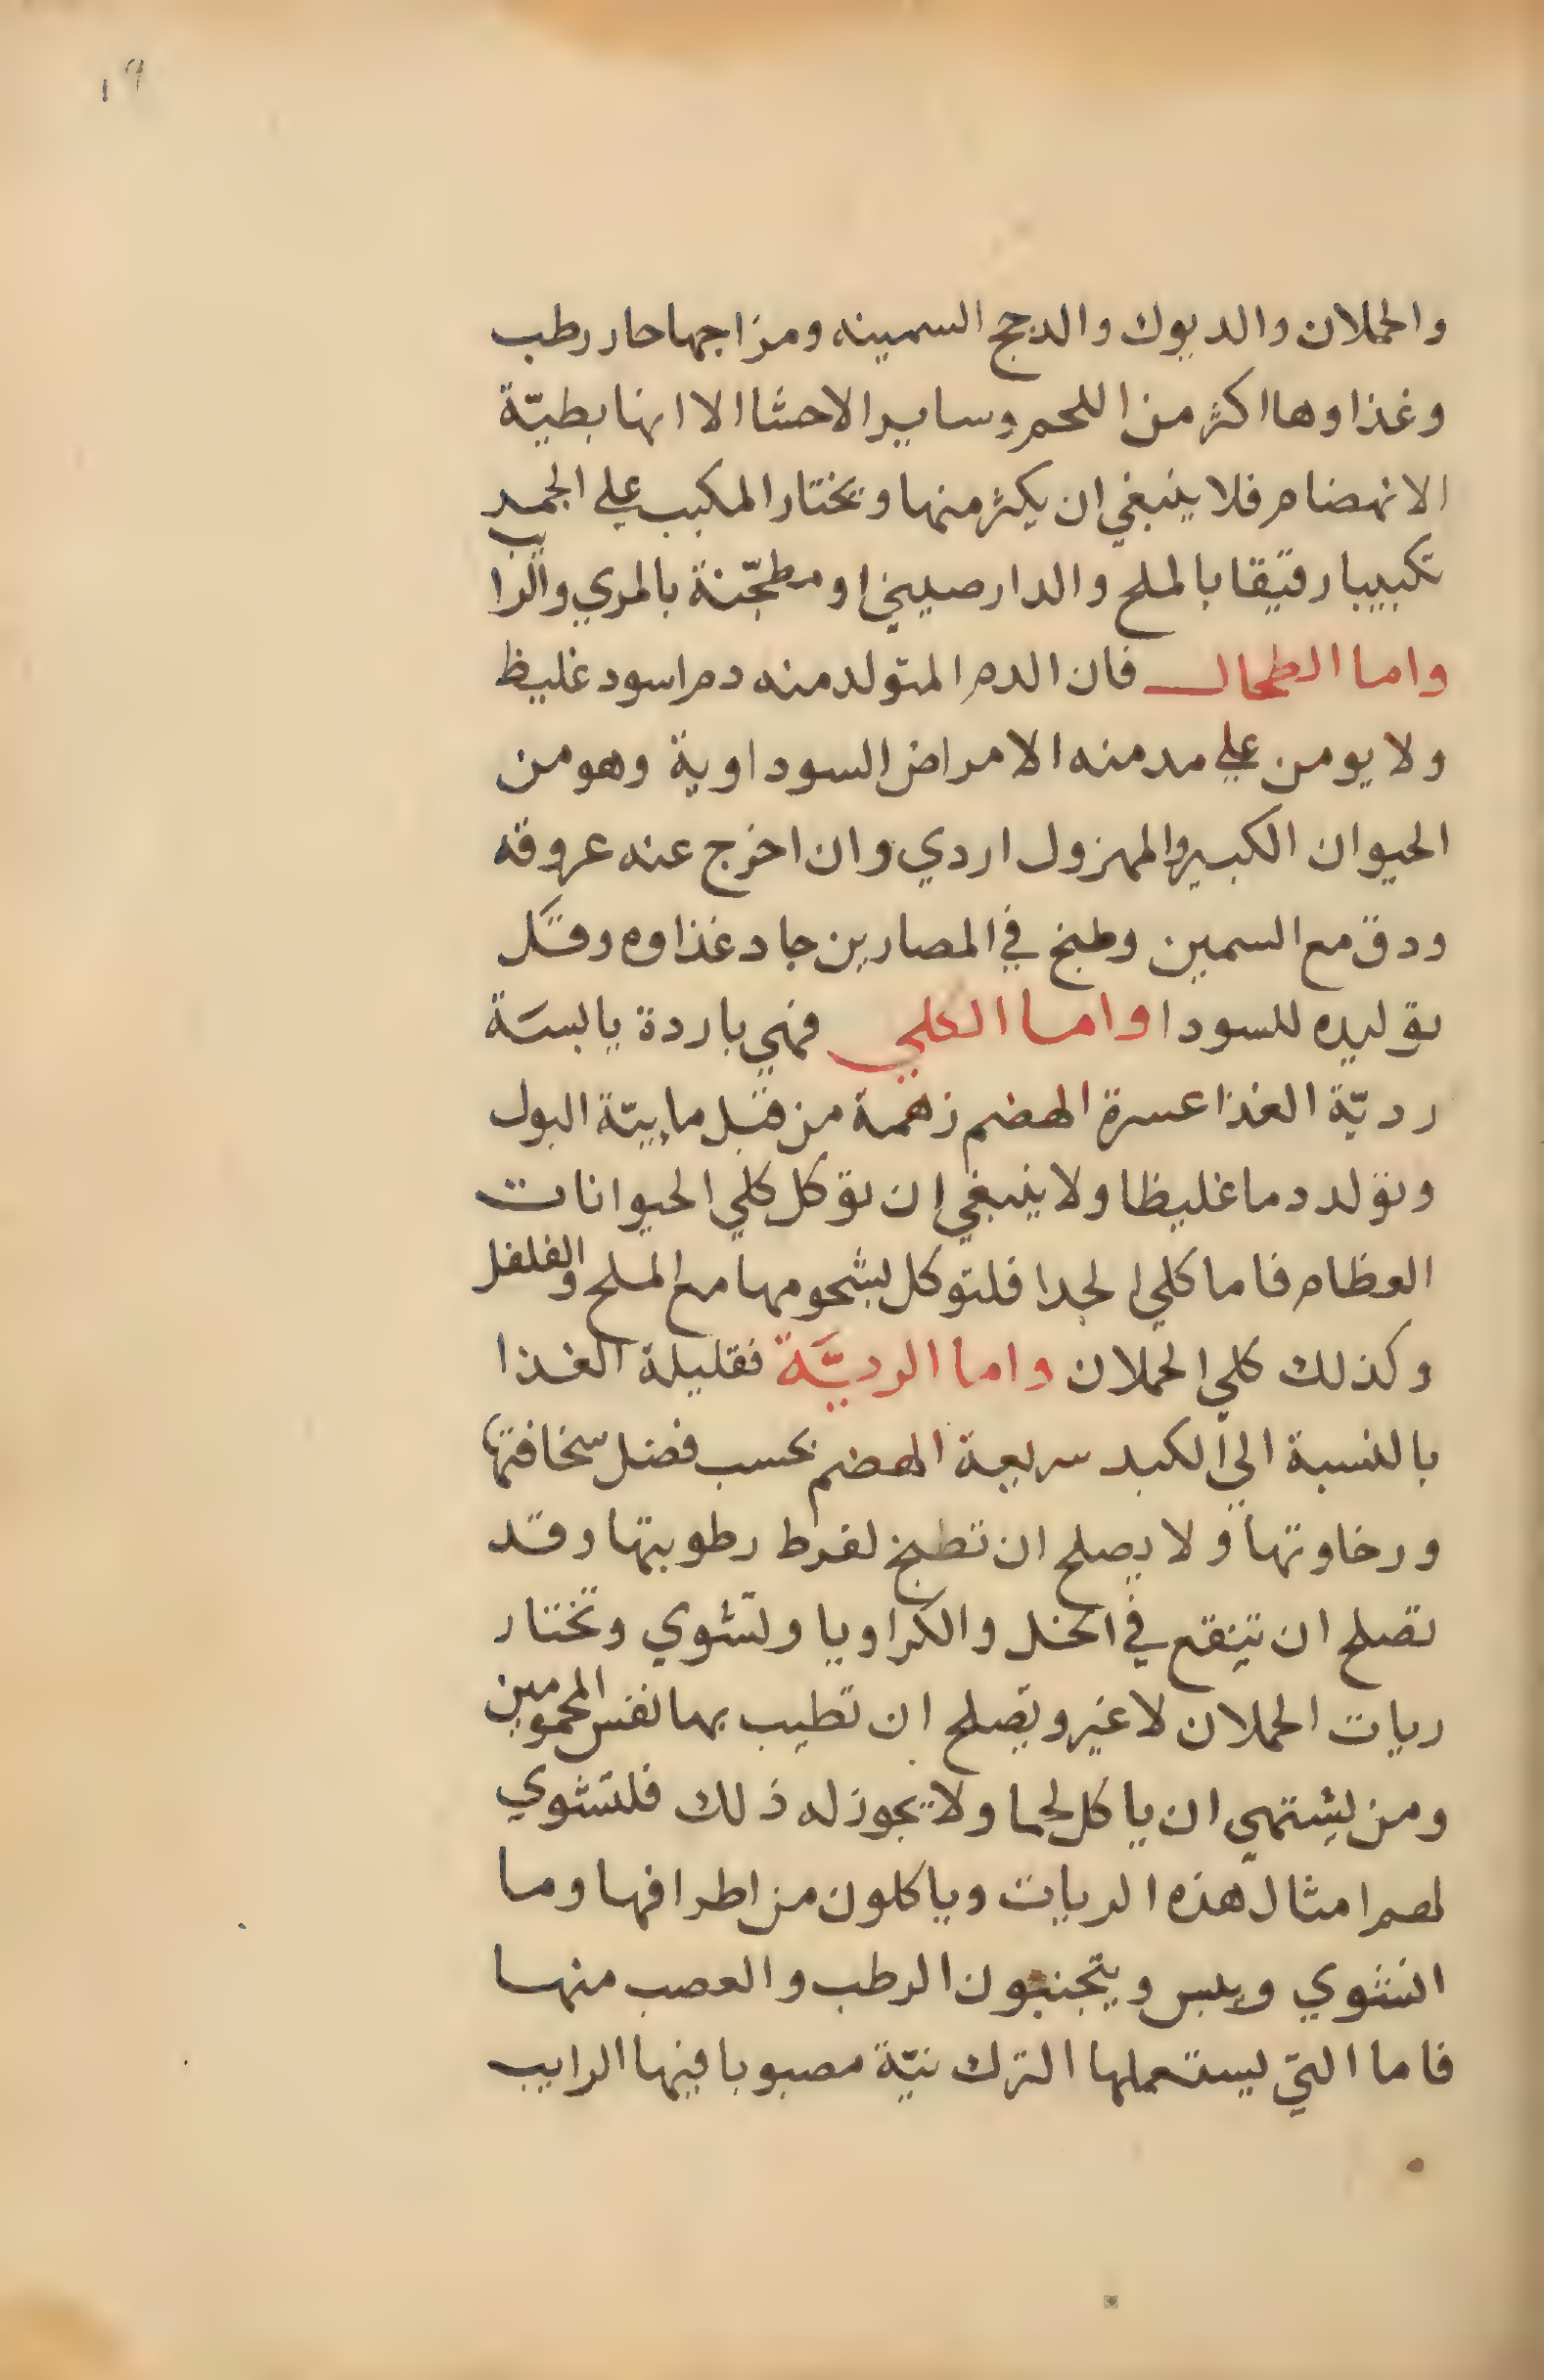 ١٩
والحملان والديوك والدجج السمينه ومزاجها حار رطب
وغذاوها اكثر من اللحم وساير الاحشا الا انها بطيّة
الانهضام فلا ينبغي ان يكثر منها وتختار المكبب علي الجمر
تكبيبا رقيقا بالملح والدارصيني او مطجّنة بالمري والزيت
واما الطحال فان الدم المتولد منه دم اسود غليظ
ولا يومن علي مدمنه الامراض السوداوية وهو من
الحيوان الكبير والمهزول اردي وان اخرج عنه عروقه
ودق مع السمين وطبخ في المصارين جاد غذاوه وقَل
توليده للسودا واما الكلي فهي باردة يابسَة
رديّة الغذا عسرة الهضم زهمة من قبل مابيّة البول
وتولد دما غليظا ولا ينبغي ان توكل كلي الحيوانات
العظام فاما كلي الجدا فلتوكل بشحومها مع الملح والفلفل
وكذلك كلي الحملان واما الرديَّة فقليلة الغذا
بالنسبة الي الكبد سريعة الهضم بحسب فضل سخافتها
ورخاوتها ولا يصلح ان تطبخ لفرط رطوبتها وقد
تصلح ان تنقع في الخل والكراويا وتشوي وتختار
ريات الحملان لا غير وتصلح ان تطيب بها نفس المحمومين
ومن يشتهي ان ياكل لحما ولا يجوز له ذلك فلتشوي
لهم امثال هذه الريات وياكلون من اطرافها وما
انشوي ويبس ويتجنبون الرطب والعصب منها
فاما التي يستعملها الترك نيّة مصبوبا فيها الرايب